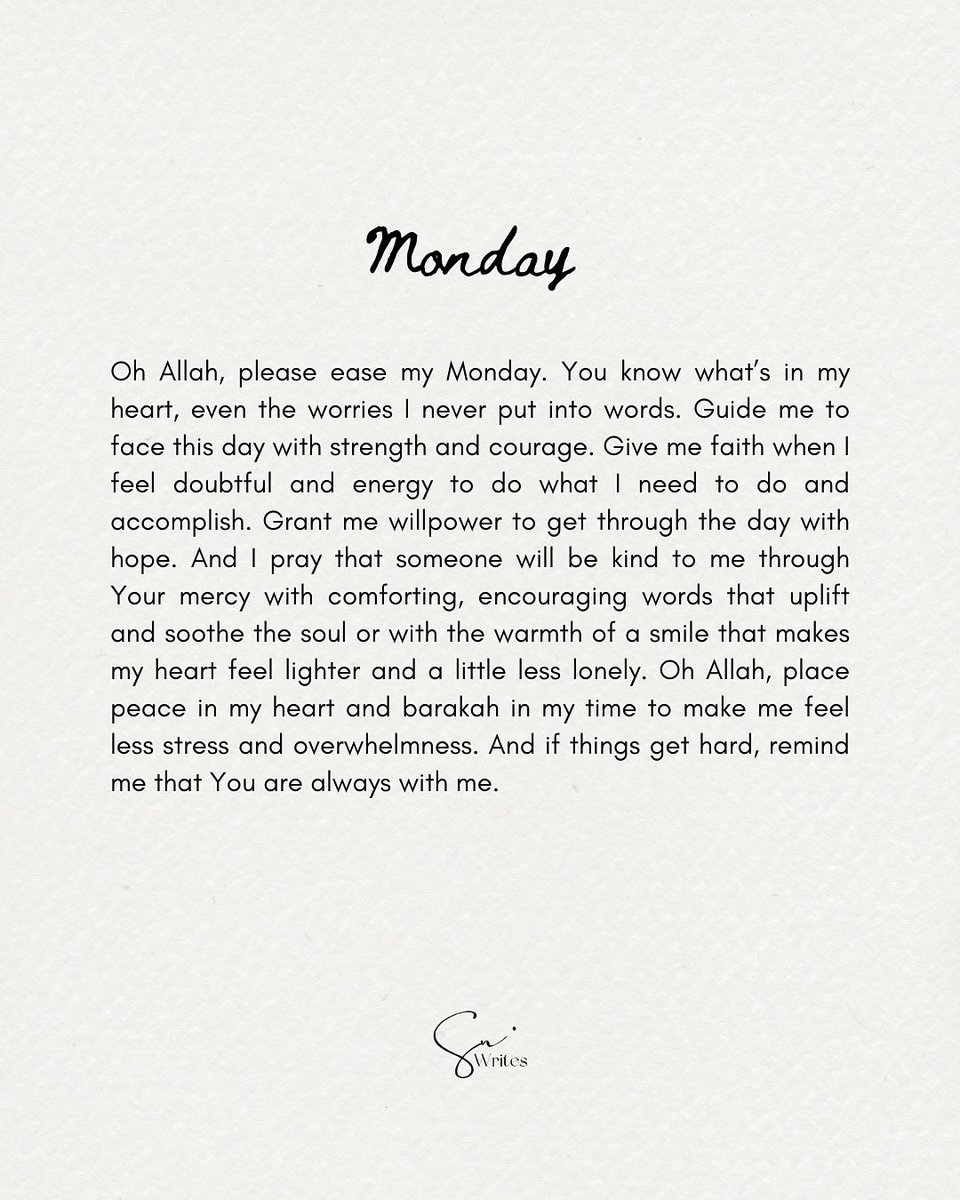 Monday
Oh Allah, please ease my Monday. You know what's in my
heart, even the worries I never put into words. Guide me to
face this day with strength and courage. Give me faith when I
feel doubtful and energy to do what I need to do and
accomplish. Grant me willpower to get through the day with
hope. And I pray that someone will be kind to me through
Your mercy with comforting, encouraging words that uplift
and soothe the soul or with the warmth of a smile that makes
my heart feel lighter and a little less lonely. Oh Allah, place
peace in my heart and barakah in my time to make me feel
less stress and overwhelmness. And if things get hard, remind
me that You are always with me.
Writes